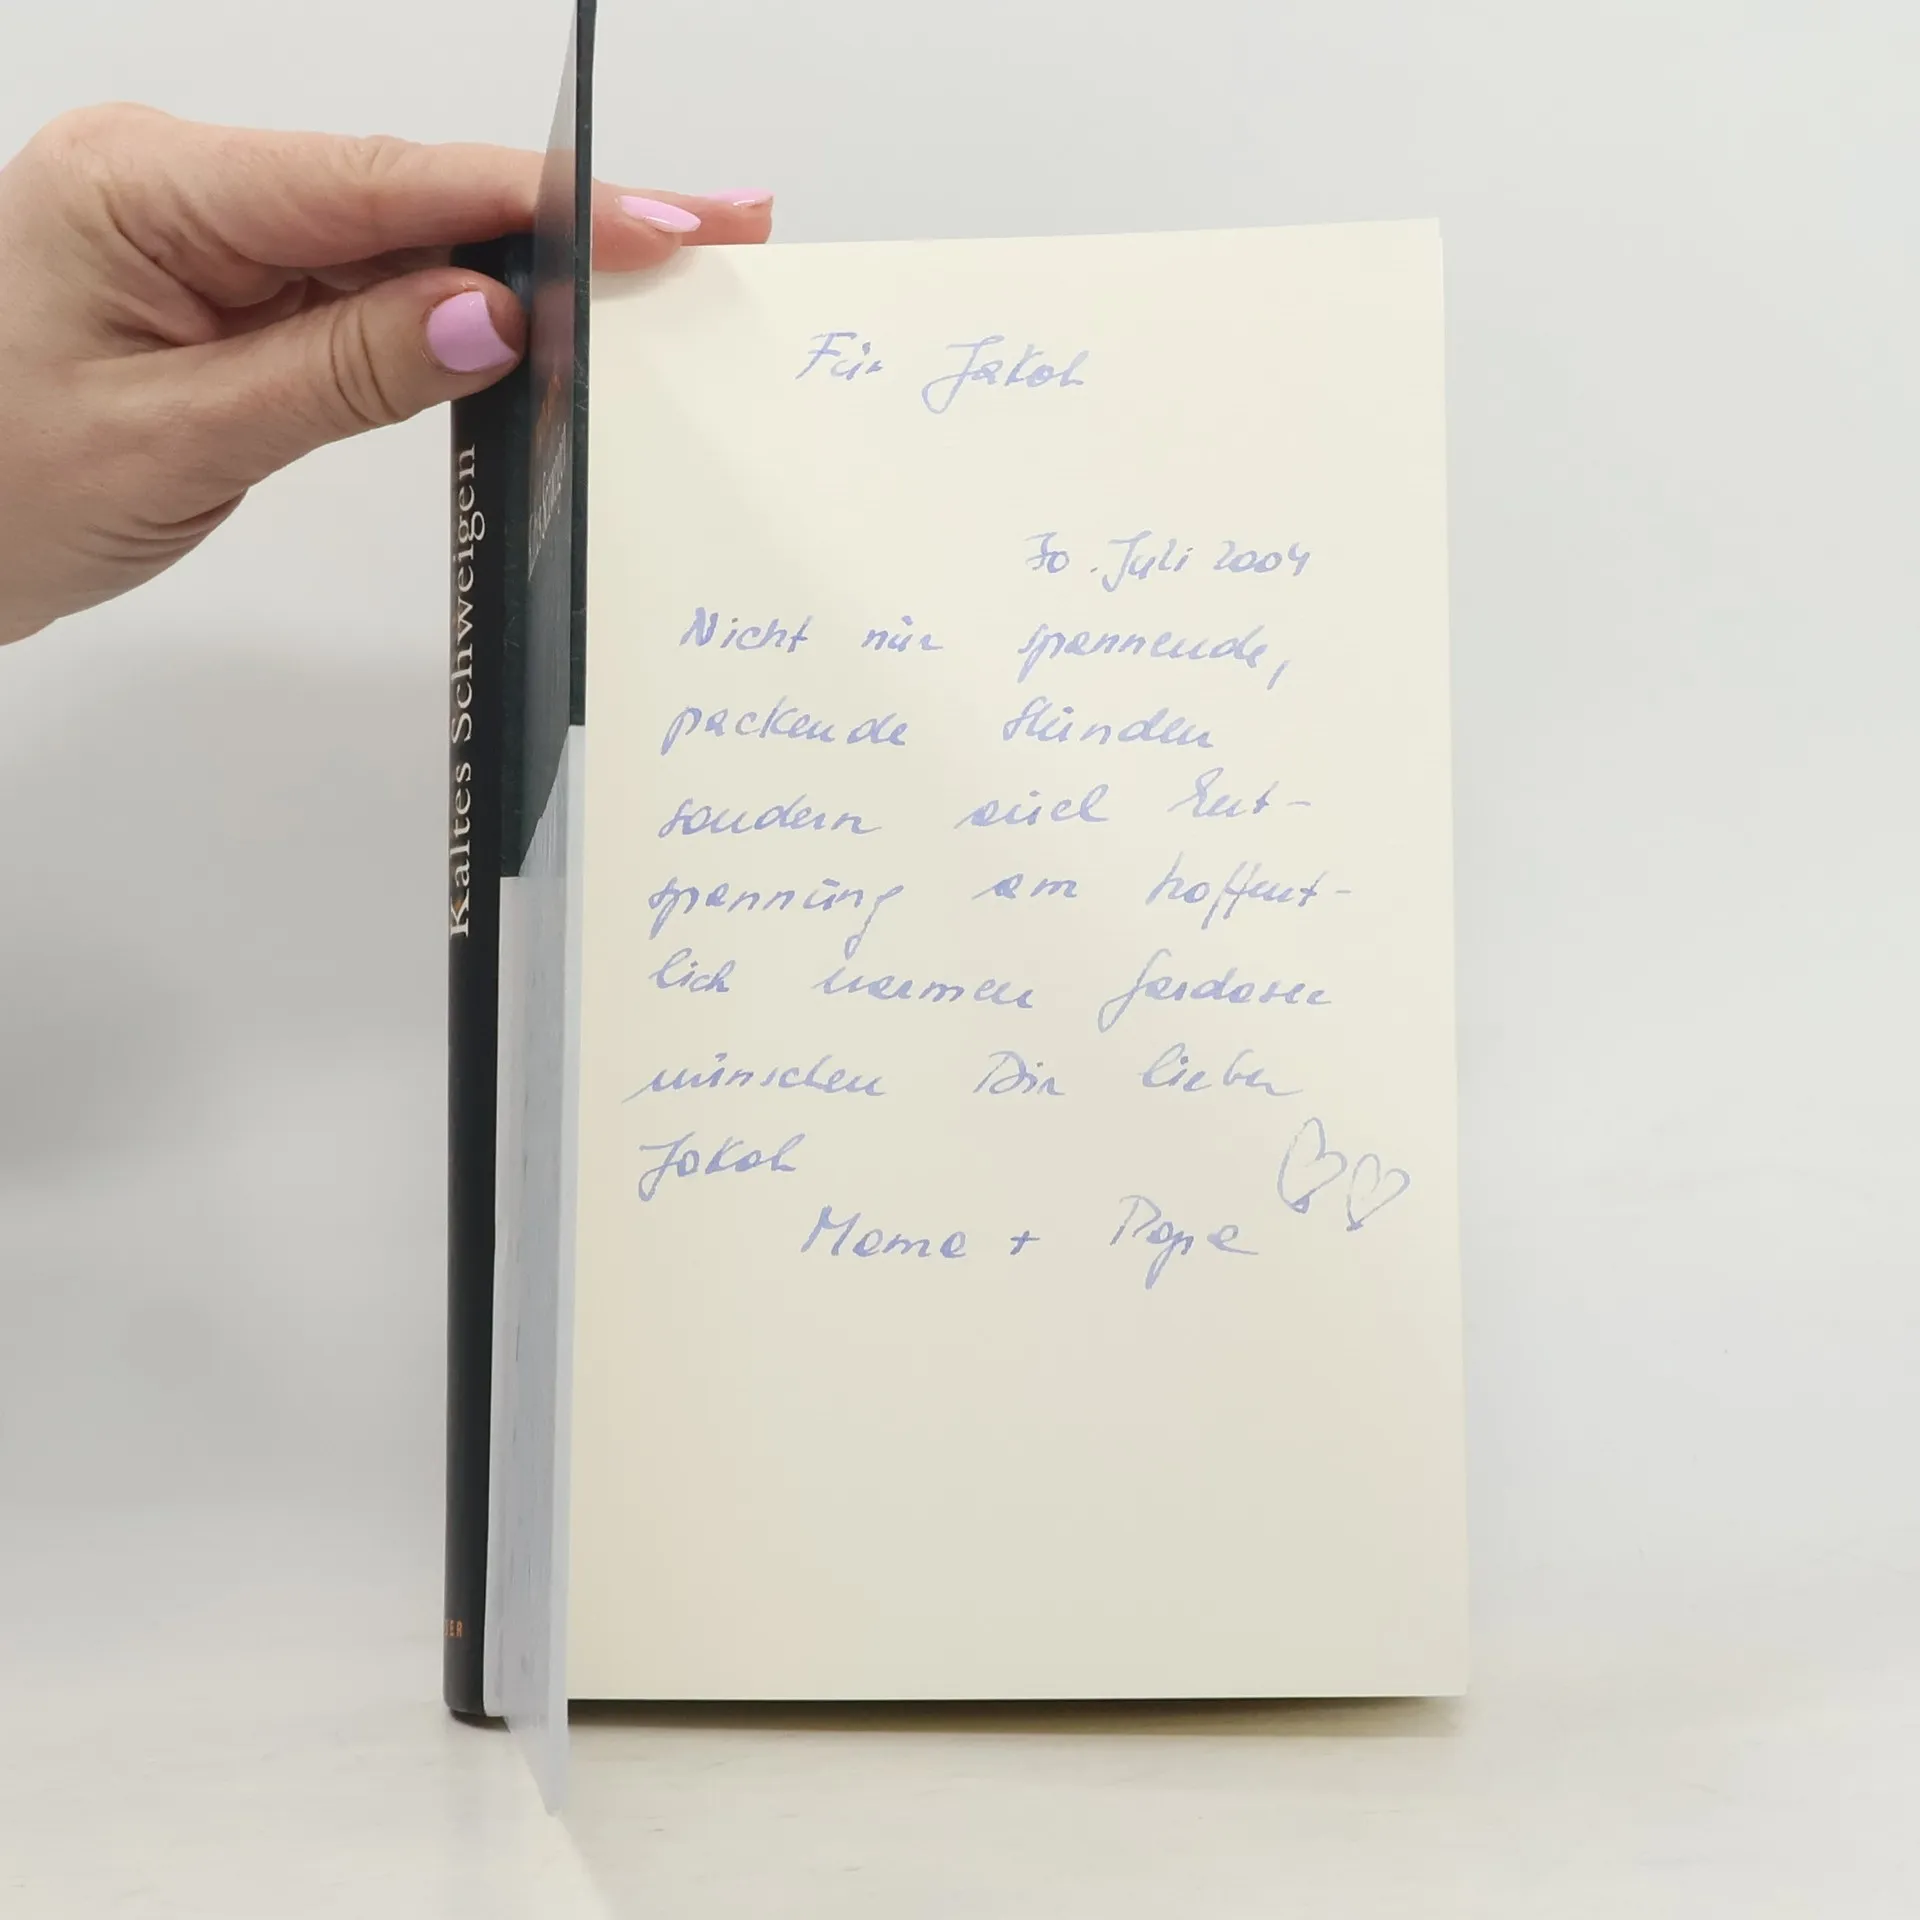 Für Jakob
30. Juli 2004
Nicht nur spannende,
packende Stunden
sondern auch Ent-
spannung am hoffent-
lich warmen Gardasee
wünschen Dir lieber
Jakob
Mama + Papa
Kaltes Schweigen